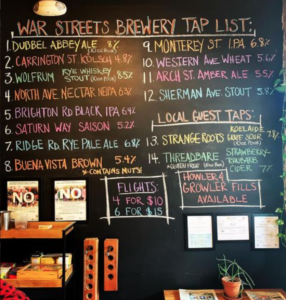 WAR STREETS BREWERY TAP LIST:
1. DUBBEL ABBEY ALE 8%
2. CARRINGTON ST. KÖLSCH 4.8%
3. WOLFRUM RYE WHISKEY STOUT
4. NORTH AVE NECTAR NEIPA
5. BRIGHTON RD BLACK IPA 6.4%
6. SATURN WAY SAISON 5.2%
7. RIDGE RD. RYE PALE ALE 6.8%
8. BUENA VISTA BROWN 5.4%
*CONTAINS NUTS!
9. MONTEREY ST. IPA 6.8%
10. WESTERN AVE WHEAT 5.6%
11. ARCH ST. AMBER ALE 5.5%
12. SHERMAN AVE. STOUT 5.8%
LOCAL GUEST TAPS:
13. STRANGE ROOTS ADELAIDE
14. THREADBARE STRAWBERRY
RHUBARB
CIDER 7%
FLIGHTS:
4 FOR $10
6 FOR $15
HOWLER &
GROWLER FILLS
AVAILABLE
NO
NO